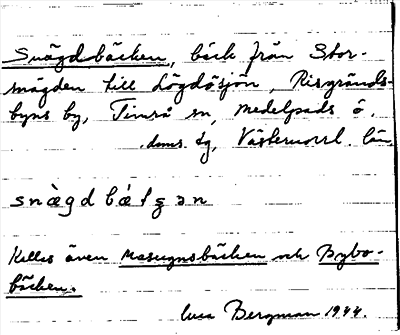 Snägdbäcken, bäck från Stor-
snägden till Lögdösjön, Risgränds-
byns by, Timrå sn, Medelpads ö.
doms. dg, Västernorrl. län
snägdbätʂən
Kallas även Masugnsbäcken och Bybo-
bäcken.
Bergman 1944.